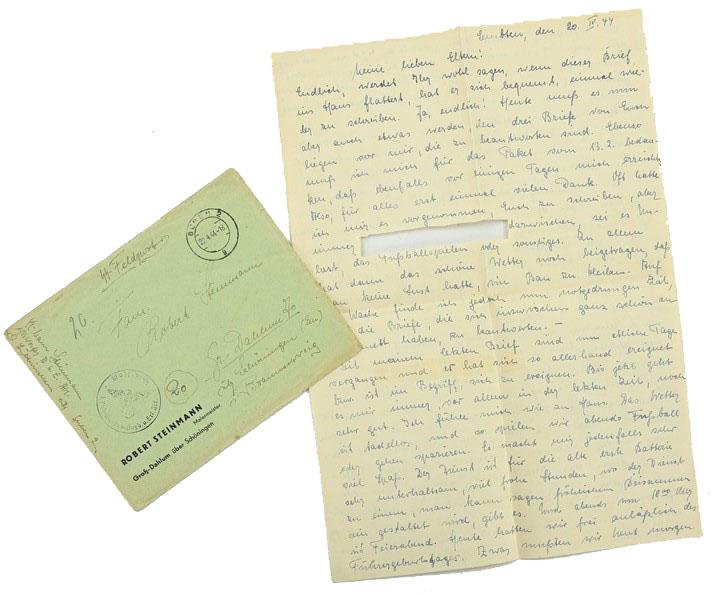 den 20. IV. 44
Meine lieben Eltern!
Endlich, werdet Ihr wohl sagen, wenn dieser Brief
ins Haus flattert, hat er sich bequemt, einmal wie-
der zu schreiben. Ja, endlich! Heute muß es nun
aber auch etwas werden, denn drei Briefe von Euch
liegen vor mir, die zu beantworten sind. Ebenso
muß ich mich für das Paket vom 13.2. bedan-
ken, daß ebenfalls vor einigen Tagen mich erreicht
Also, für alles erst einmal vielen Dank. Oft hatte
ich mir es vorgenommen, Euch zu schreiben, aber
immer dazwischen, sei es Un-
lust, das Fußballspielen oder sonstiges. Zu allem
hat dann das schöne Wetter noch beigetragen, daß
keine Lust hatte, im Bau zu bleiben. Auf
Wache finde ich jedoch nun notgedrungen Zeit,
die Briefe, die sich inzwischen ganz schön an
haben, zu beantworten. –
Seit meinem letzten Brief sind nun etliche Tage
vergangen und es hat sich so allerhand ereignet
bzw. ist im Begriff, sich zu ereignen. Bis jetzt geht
es mir immer, vor allem in der letzten Zeit, noch
sehr gut. Ich fühle mich wie zu Haus. Das Wetter
ist tadellos, und so spielen wir abends Fußball
oder gehen spazieren. Es macht mir jedenfalls sehr
viel Spaß. Der Dienst ist für die alte erste Batterie
sehr unterhaltsam, viel frohe Stunden, wo der Dienst
zu einem, man kann sagen fröhlichen Beisammen
sein gestaltet wird, gibt es. Und abends um 18 00 Uhr
ist Feierabend. Heute hatten wir frei anläßlich des
Führergeburtstages. Zwar mußten wir heut morgen
22.4.44-18
Feldpost
26.
Fam.
Robert Steinmann
Gr. Dahlum 70
Schöningen
Braunschweig
ROBERT STEINMANN
Malermeister
Groß-Dahlum über Schöningen